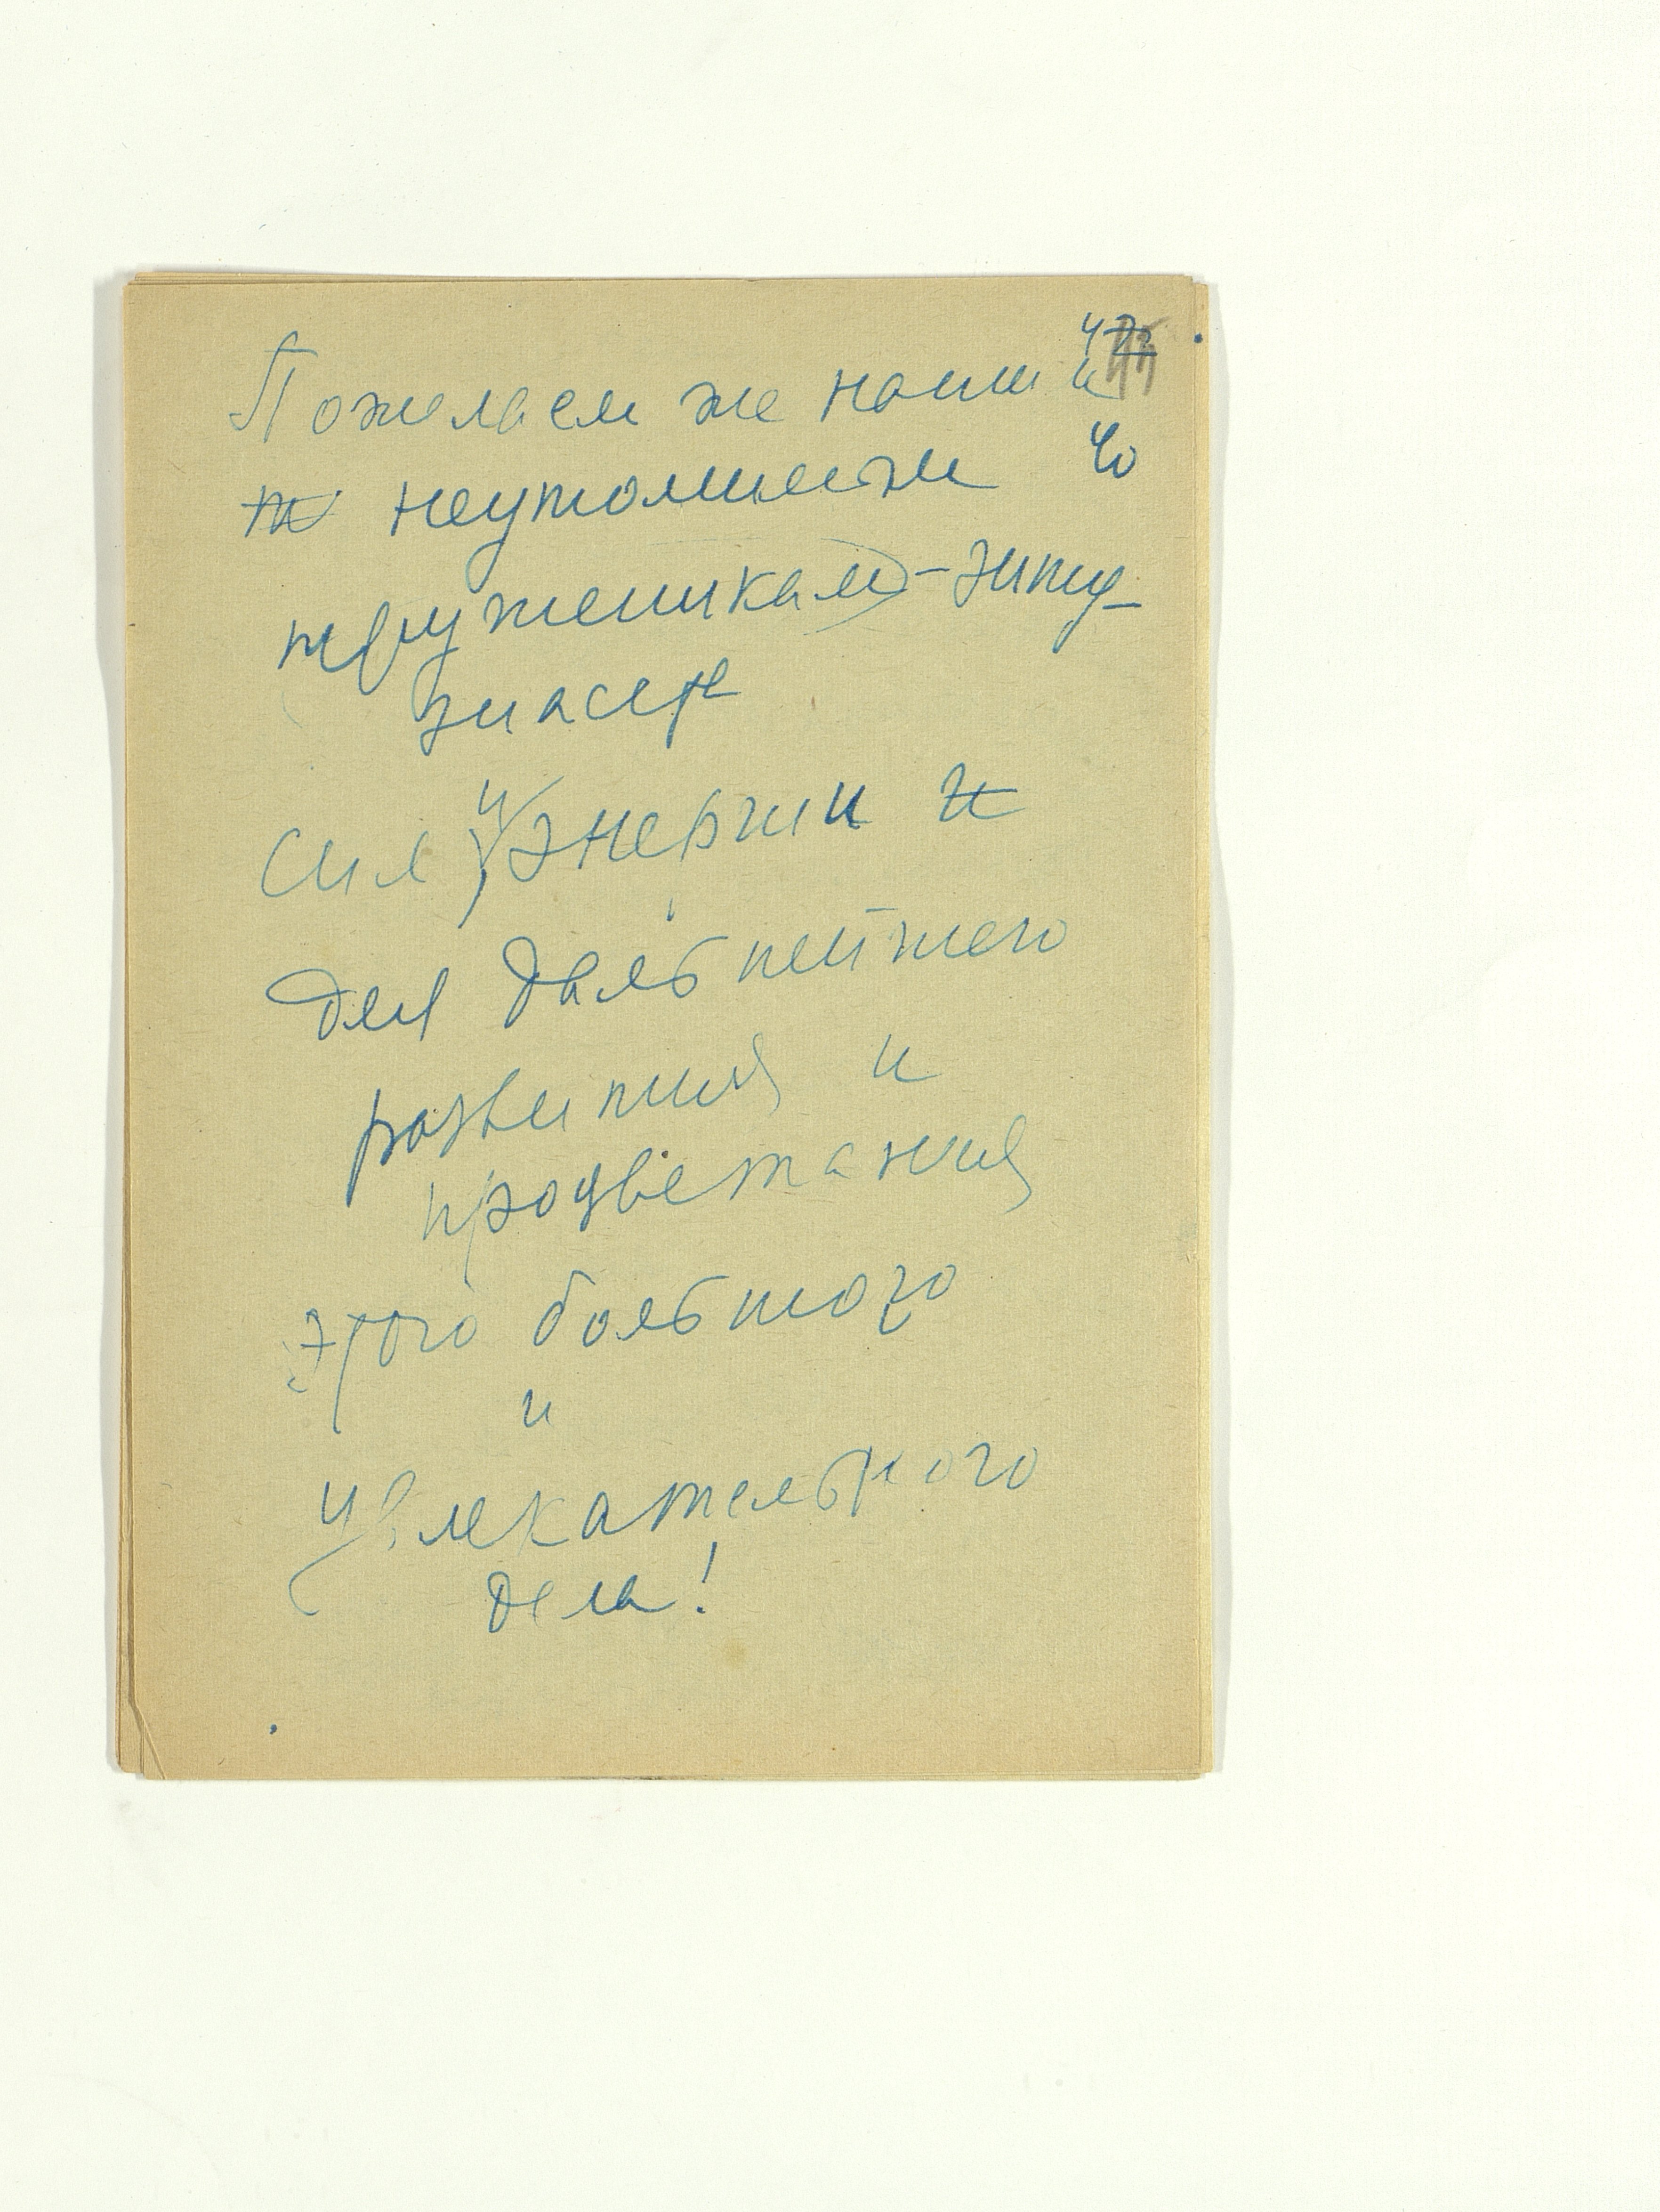 Пожелаем же наши
неутомимым 40
труженикам-энту-
зиаста
сил и энергии и
для дальнейшего
развития и
процветания
этого большого
и
увлекательного
дела!